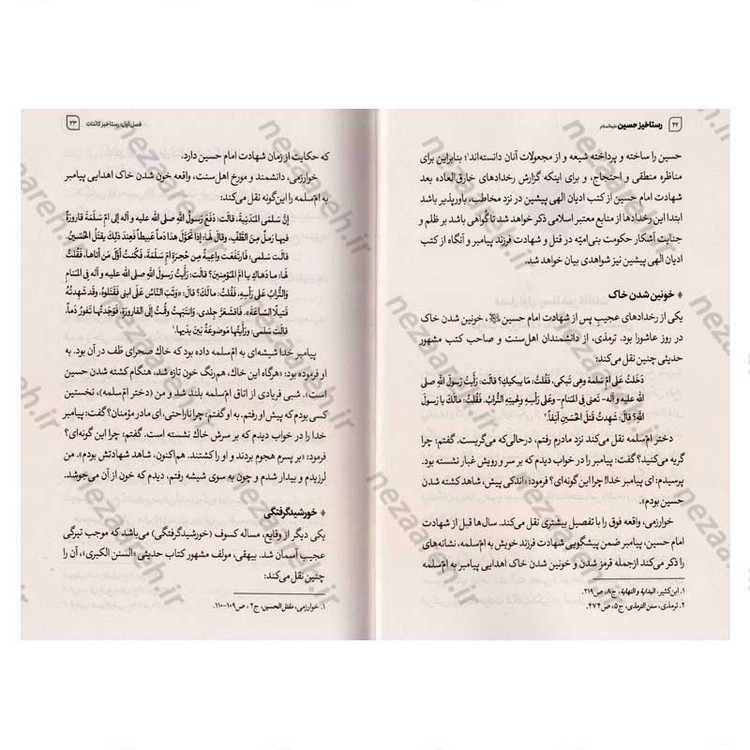 ۲۲ رستاخیز حسین علیه‌السلام
حسین را ساخته و پرداخته شیعه و از مجعولات آنان دانسته‌اند۱؛ بنابراین برای
مناظره منطقی و احتجاج، و برای اینکه گزارش رخدادهای خارق‌العاده بعد
شهادت امام حسین از کتب ادیان الهی پیشین در نزد مخاطب، باورپذیر باشد
ابتدا این رخدادها از منابع معتبر اسلامی ذکر خواهد شد تا گواهی باشد بر ظلم و
جنایت آشکار حکومت بنی‌امیّه در قتل و شهادت فرزند پیامبر و آنگاه از کتب
ادیان الهی پیشین نیز شواهدی بیان خواهد شد.
خونین شدن خاک
یکی از رخدادهای عجیب پس از شهادت امام حسین، خونین شدن خاک
در روز عاشورا بود. ترمذی، از دانشمندان اهل‌سنت و صاحب کتب مشهور
حدیثی چنین نقل می‌کند:
دَخَلتُ عَلی اُمّ سَلمة وهِیَ تَبکی، فَقُلتُ: ما یبکیكِ؟ قالَت: رَأیتُ رَسولَ اللّهِ صلی
الله علیه و آله- تَعنی فِی المَنامِ - وعَلی رَأسِهِ ولِحیَتِهِ التُّرابُ. فَقُلتُ: مالَكَ یا رَسولَ
اللّهِ؟ قالَ: شَهِدتُ قَتلَ الحُسَینِ آنِفاً.۲
دختر امّ‌سلمه نقل می‌کند نزد مادرم رفتم، درحالی‌که می‌گریست. گفتم: چرا
گریه می‌کنید؟ گفت: پیامبر را در خواب دیدم که بر سر و رویش غبار نشسته بود.
پرسیدم: ای پیامبر خدا! چرا این گونه‌ای؟ فرمود: «اندکی پیش، شاهد کشته شدن
حسین بودم».
خوارزمی، واقعه فوق را با تفصیل بیشتری نقل می‌کند. سال‌ها قبل از شهادت
امام حسین، پیامبر ضمن پیشگویی شهادت فرزند خویش به امّ‌سلمه، نشانه‌های
را ذکر می‌کند ازجمله قرمز شدن و خونین شدن خاک اهدایی پیامبر به امّ‌سلمه
۱. ابن‌کثیر، البدایة و النهایة، ج۸، ص۲۱۹.
۲. ترمذی، سنن الترمذی، ج۵، ص۴۷۴.
فصل اول: رستاخیز کائنات ۲۳
که حکایت از زمان شهادت امام حسین دارد.
خوارزمی، دانشمند و مورخ اهل‌سنت، واقعه خون شدن خاک اهدایی پیامبر
به امّ‌سلمه را این‌گونه نقل می‌کند:
إنَّ سَلمَی المَدَنِیَّةَ، قالَت: دَفَعَ رَسولُ اللّهِ صلی الله علیه و آله إلی اُمِّ سَلَمَةَ قارورَةً
فیها رَملٌ مِنَ الطَّفِّ، وقالَ لَها: إذا تَحَوَّلَ هذا دَماً عَبیطاً فَعِندَ ذلِكَ یقتَلُ الحُسَینُ.
قالَت سَلمی: فَارتَفَعَت واعِیَةٌ مِن حُجرَةِ اُمِّ سَلَمَةَ، فَکُنتُ أوَّلَ مَن أتاها، فَقُلتُ
لَها: ما دَهاكِ یا اُمَّ المُؤمِنینَ؟ قالَت: رَأیتُ رَسولَ اللّهِ صلی الله علیه و آله فِی المَنامِ
وَالتُّرابُ عَلی رَأسِهِ، فَقُلتُ: مالَكَ؟ قالَ: «وَثَبَ النّاسُ عَلَی ابنی فَقَتَلوهُ، وقَد شَهِدتُهُ
قَتیلًا السّاعَةَ». فَاقشَعَرَّ جِلدی، وَانتَبَهتُ وقُمتُ إلَی القارورَةِ، فَوَجَدتُها تَفورُ دَماً.
قالَت سَلمی: ورَأیتُها مَوضوعَةً بَینَ یدَیها.۱
پیامبر خدا شیشه‌ای به امّ‌سلمه داده بود که خاک صحرای طَف در آن بود. به
او فرموده بود: «هرگاه این خاك، هم‌رنگ خون تازه شد، هنگام کشته شدن حسین
است»، شبی فریادی از اتاق امّ‌سلمه بلند شد و من (دختر امّ‌سلمه)، نخستین
کسی بودم که پیش او رفتم. به او گفتم: چرا ناراحتی، ای مادر مؤمنان؟ گفت: پیامبر
خدا را در خواب دیدم که بر سرش خاك نشسته است. گفتم: چرا این گونه‌ای؟
فرمود: «بر پسرم هجوم بردند و او را کشتند. هم‌اکنون، شاهد شهادتش بودم».
لرزیدم و بیدار شدم و چون به سوی شیشه رفتم، دیدم که خون از آن می‌جوشد.
خورشیدگرفتگی
یکی دیگر از وقایع، مساله کسوف (خورشیدگرفتگی) می‌باشد که موجب تیرگی
عجیب آسمان شد. بیهقی، مولف مشهور کتاب حدیثی «السنن الکبری»، آن را
چنین نقل می‌کند:
۱. خوارزمی، مقتل الحسین، ج۲، ص۱۰۹-۱۱۰.
nezaareh.ir